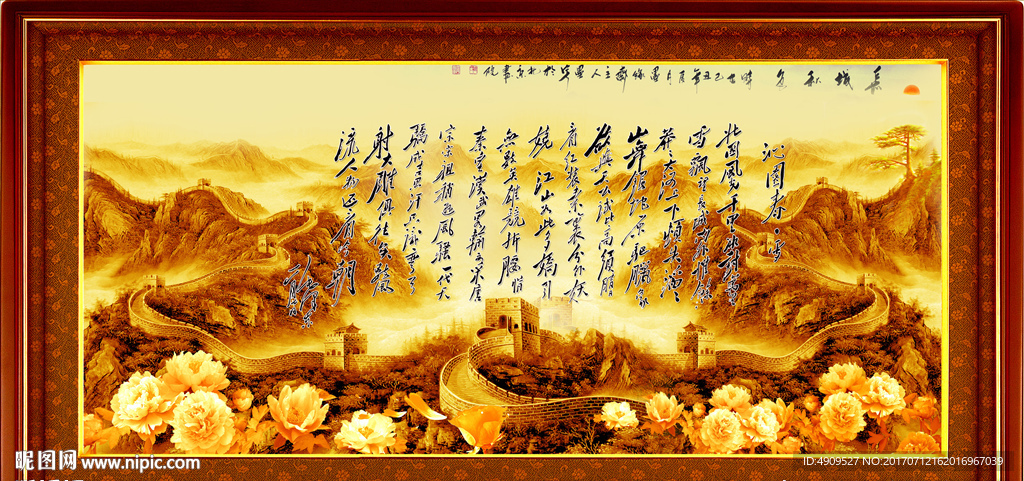 長城秋色
沁園春·雪
北国風光千里冰封萬里
雪飘望長城内外惟餘
莽莽大河上下頓失滔滔
山舞銀蛇原驰腊象
欲與天公試比高須晴
看红装素裹分外妖
娆 江山如此多嬌引
無數英雄競折腰惜
秦皇漢武略輸文采唐
宗宋祖稍逊風骚一代天
驕成吉思汗只識彎弓
射大雕俱往矣數
流人物还看今朝
毛澤東
昵图网 www.nipic.com
ID:4909527 NO:20170712162016967039